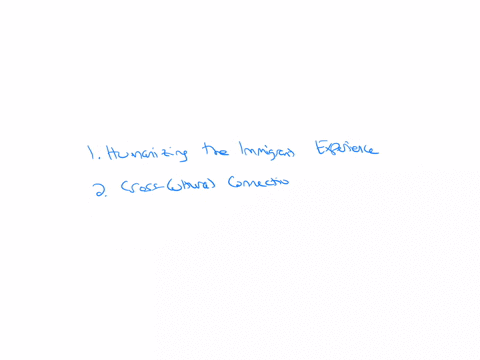 1. Humanizing the Immigrant Experience
2. Cross-Cultural Connectio